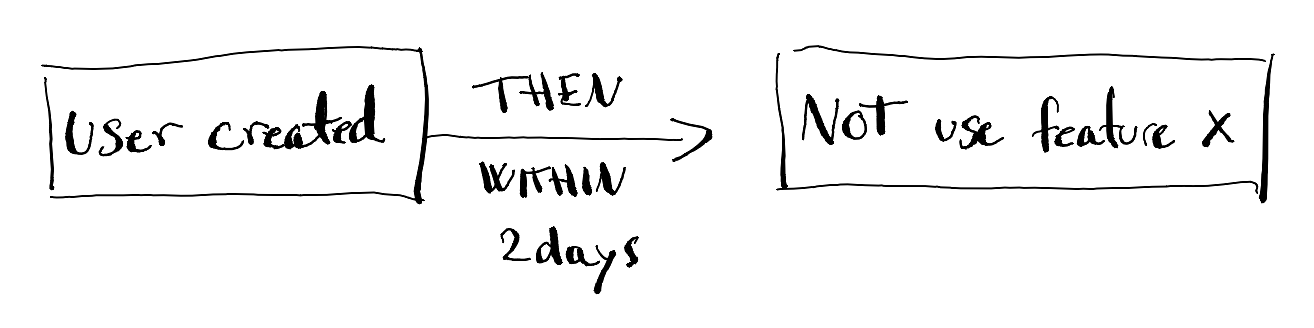 User created
THEN
WITHIN
2days
Not use feature X